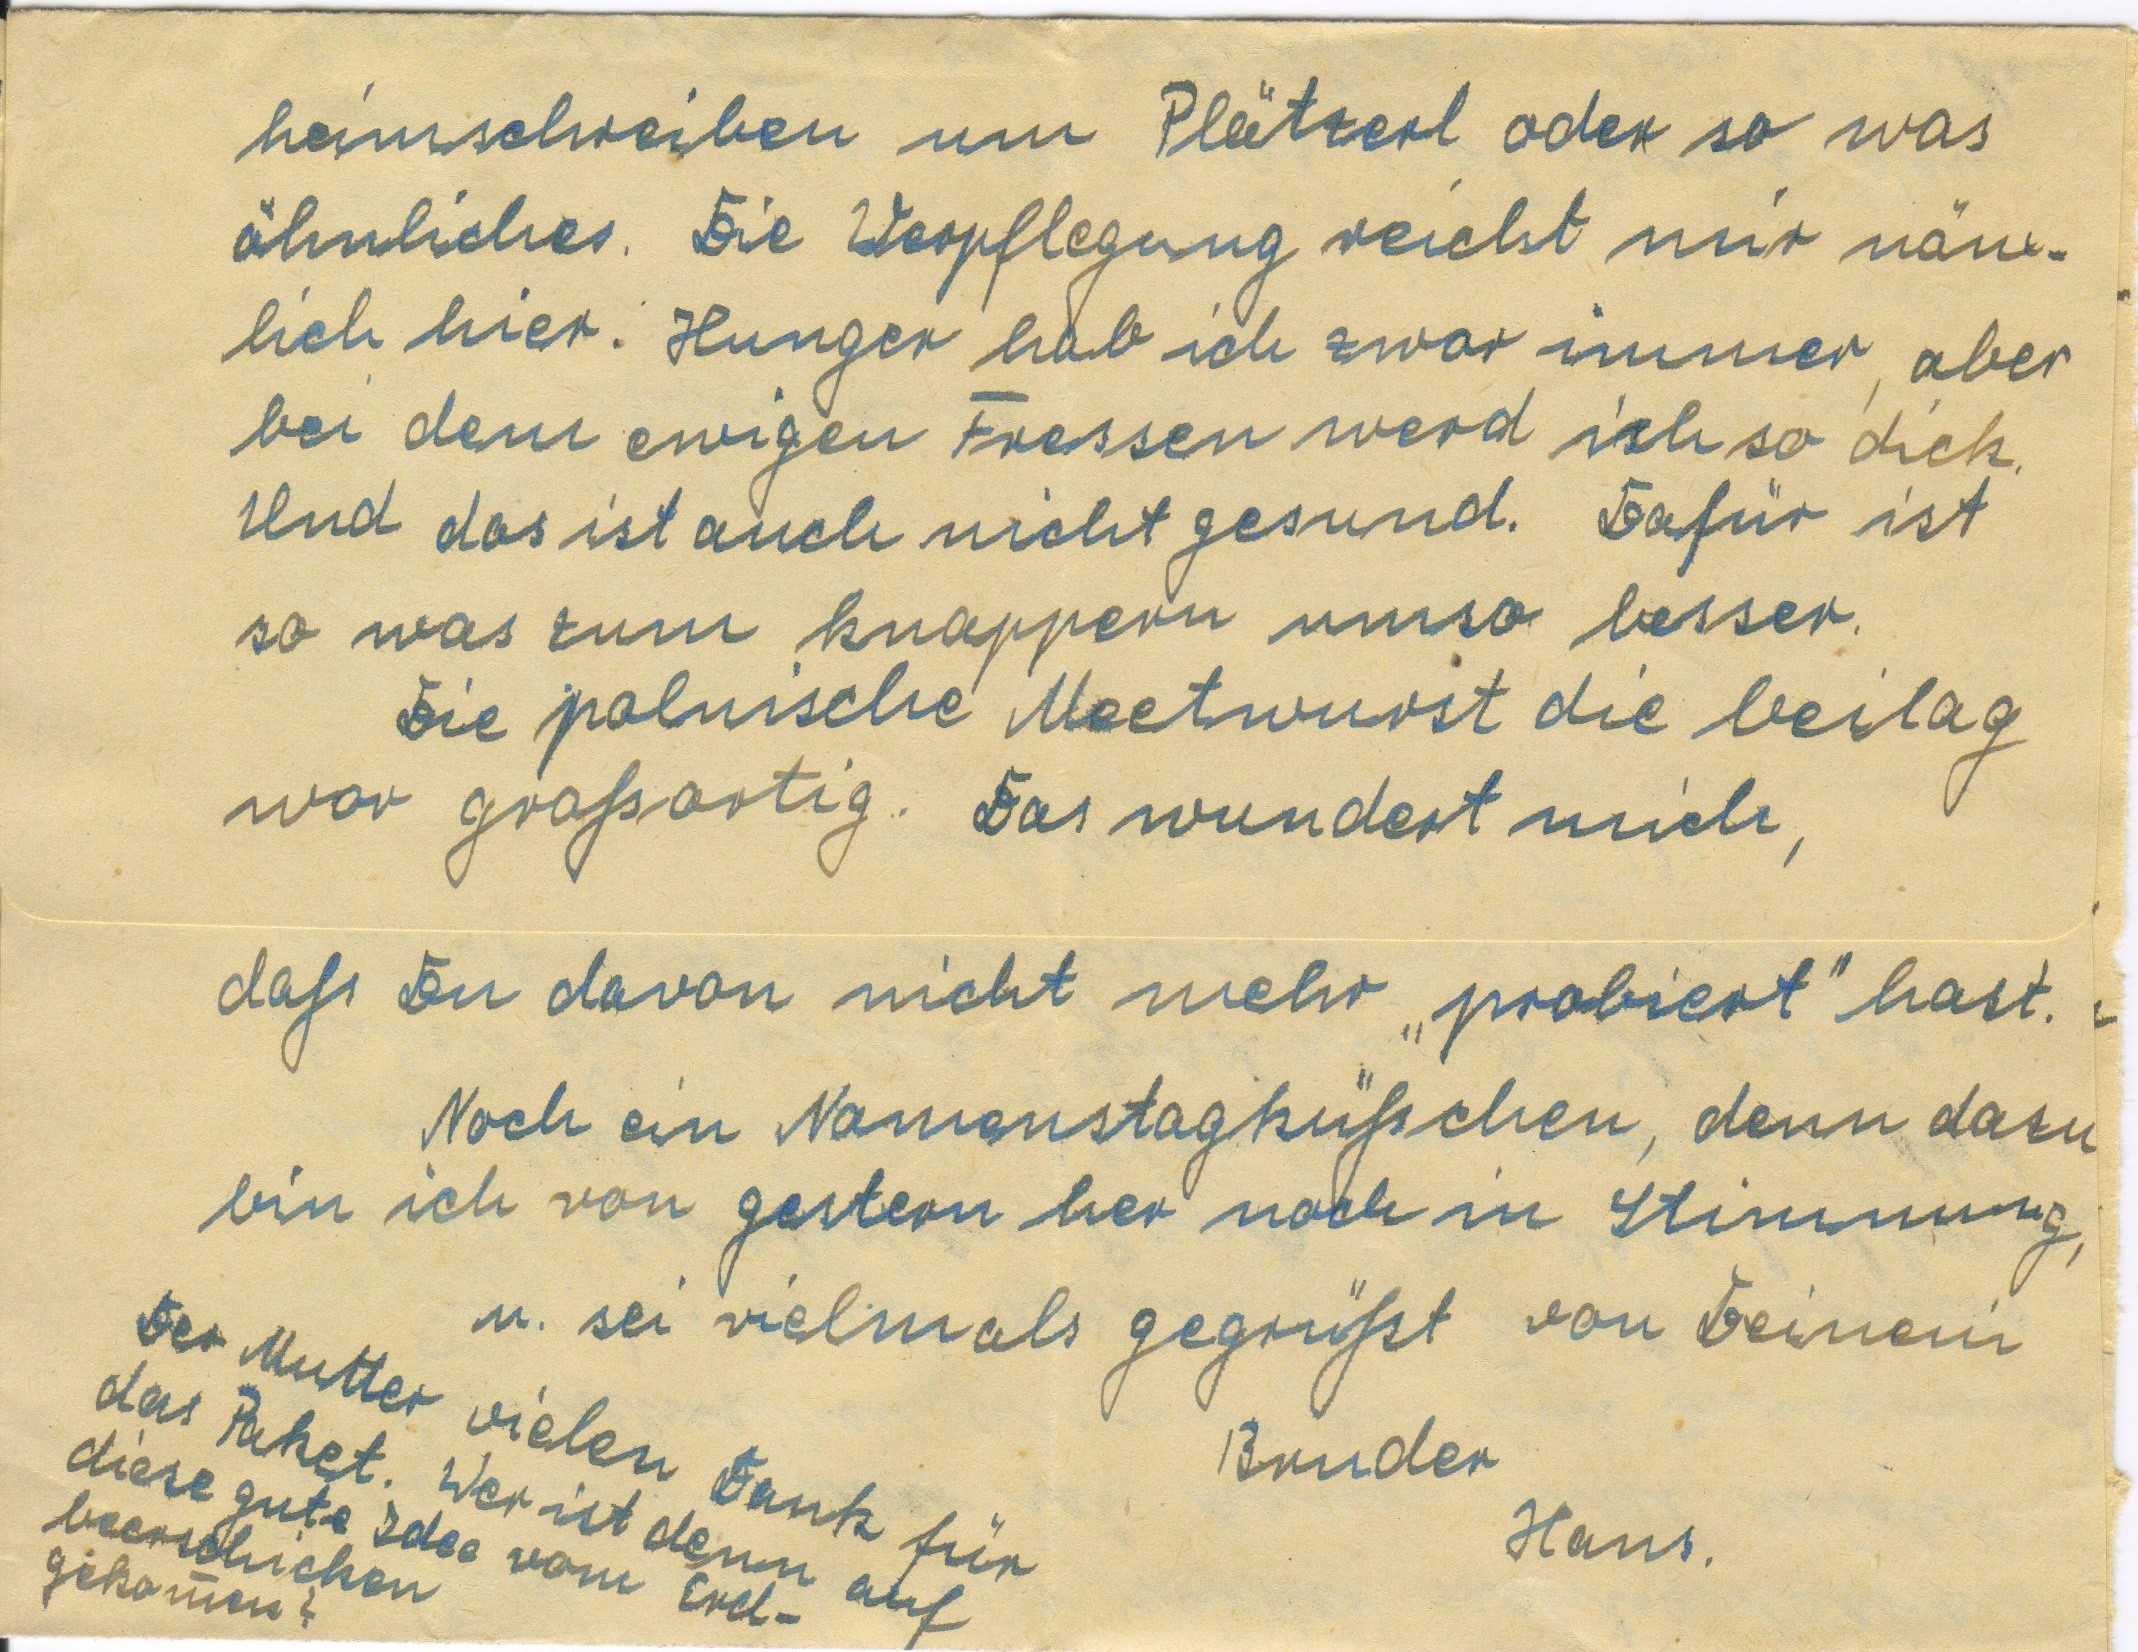 heimschreiben um Plätzerl oder so was
ähnliches. Die Verpflegung reicht mir näm-
lich hier. Hunger hab ich zwar immer, aber
bei dem ewigen Fressen werd ich so dick.
Und das ist auch nicht gesund. Dafür ist
so was zum knappern umso besser.
Die polnische Meetwurst die beilag
war großartig. Das wundert mich,
daß Du davon nicht mehr „probiert" hast.
Noch ein Namenstagküßchen, denn dazu
bin ich von gestern her noch in Stimmung,
u. sei vielmals gegrüßt von Deinem
Bruder
Hans.
Der Mutter vielen Dank für
das Paket. Wer ist denn auf
diese gute Idee vom Erd-
beerschicken
gekom̅en?